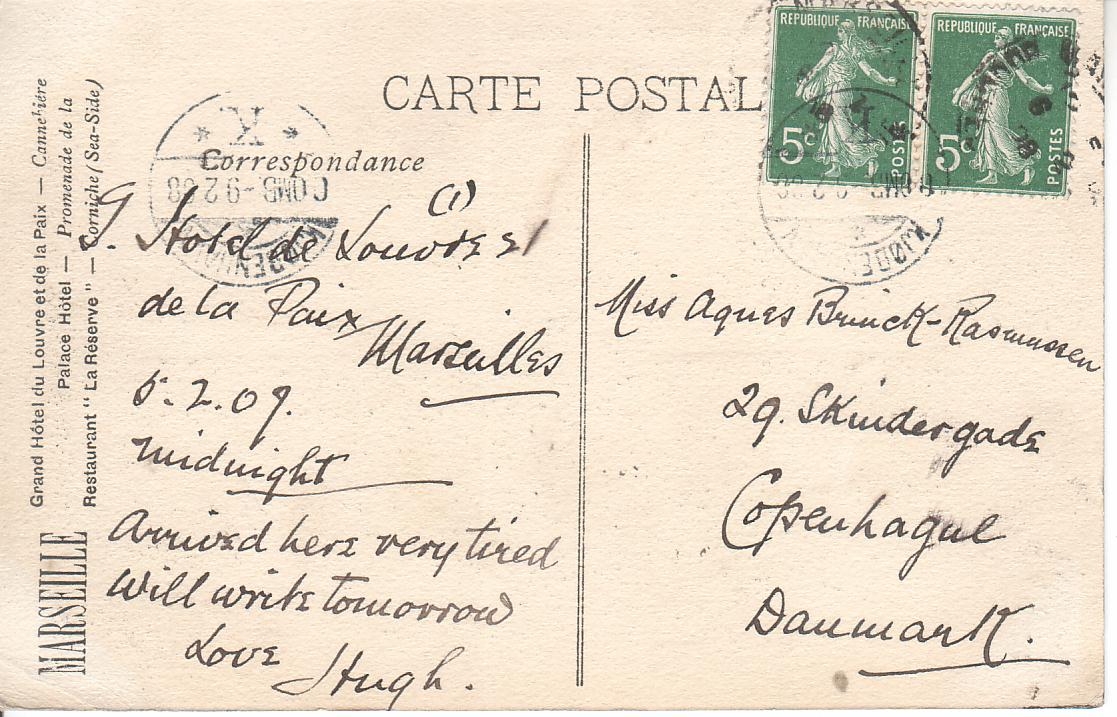 CARTE POSTALE
Correspondance
MARSEILLE
Grand Hôtel du Louvre et de la Paix — Cannebière
Palace Hôtel — Promenade de la
Restaurant "La Réserve" — Corniche (Sea-Side)
REPUBLIQUE FRANÇAISE
5c
POSTES
REPUBLIQUE FRANÇAISE
5c
POSTES
K
(1)
G. Hotel de Louvre et
de la Paix
Marseilles
5.2.09.
midnight
Arrived here very tired
Will write tomorrow
Love
Hugh.
Miss Agnes Brinck-Rasmussen
29. Skindergade
Copenhague
Danmark.